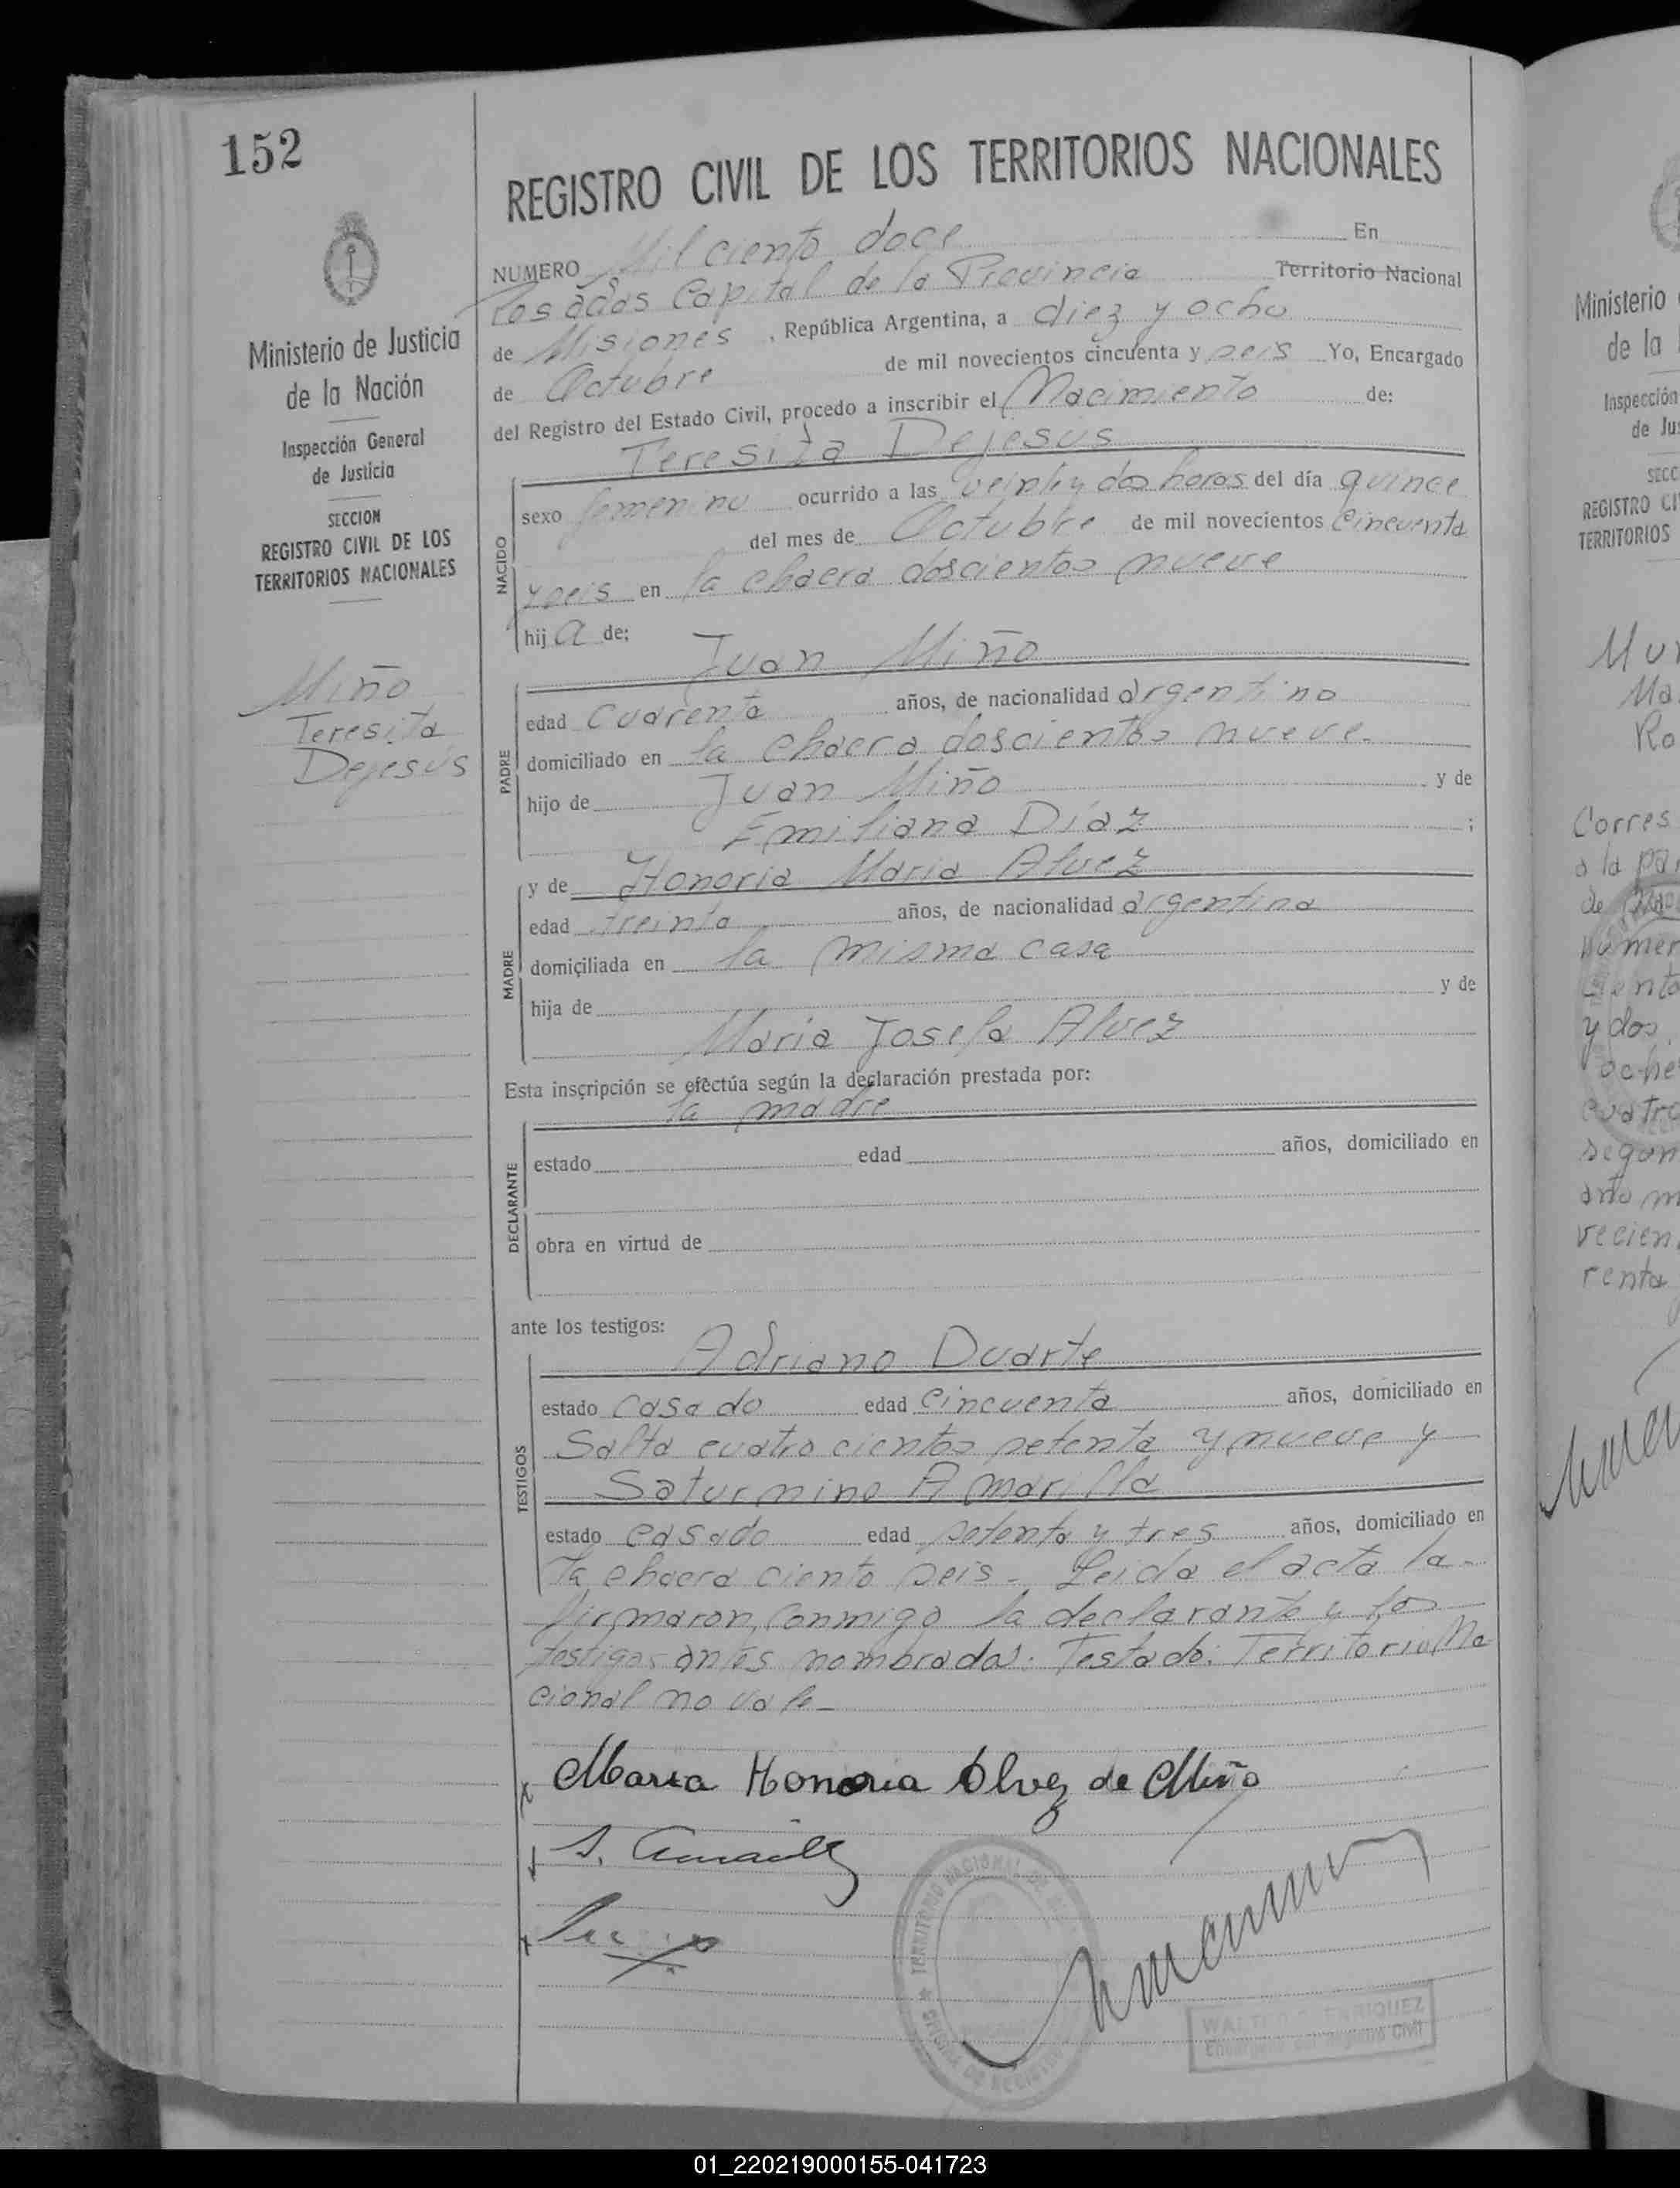 152
REGISTRO CIVIL DE LOS TERRITORIOS NACIONALES
Ministerio de Justicia
de la Nación
Inspección General
de Justicia
SECCION
REGISTRO CIVIL DE LOS
TERRITORIOS NACIONALES
Miño
Teresita
Dejesús
NUMERO Mil ciento doce En
Posadas Capital de la Provincia Territorio Nacional
de Misiones, República Argentina, a diez y ocho
de Octubre de mil novecientos cincuenta y seis Yo, Encargado
del Registro del Estado Civil, procedo a inscribir el Nacimiento de:
Teresita Dejesus
NACIDO
sexo femenino ocurrido a las veinti y dos horas del día quince
del mes de Octubre de mil novecientos cincuenta
y seis en la chacra doscientos nueve
hija de:
Juan Miño
PADRE
edad cuarenta años, de nacionalidad argentino
domiciliado en la chacra doscientos nueve-
hijo de Juan Miño y de
Emiliana Díaz ;
y de Honoria Maria Alvez
MADRE
edad treinta años, de nacionalidad argentina
domiciliada en la misma casa
hija de y de
Maria Josefa Alvez
Esta inscripción se efectúa según la declaración prestada por:
la madre
DECLARANTE
estado edad años, domiciliado en
obra en virtud de
ante los testigos:
Adriano Duarte
TESTIGOS
estado casado edad cincuenta años, domiciliado en
Salta cuatro cientos setenta y nueve y
Saturnino Amarilla
estado casado edad setenta y tres años, domiciliado en
la chacra ciento seis- Leida el acta la-
firmaron, conmigo la declarante y los
testigos antes nombrados. Testado: Territorio Na
cional no vale-
x Maria Honoria Alvez de Miño
S. Amarilla
TERRITORIO NACIONAL DE
WALTER ENRIQUEZ
Encargado del Registro Civil
Ministerio
de la
Inspección
de Jus
SECC
REGISTRO CI
TERRITORIOS
Mu
Ma
Ro
Corres
a la par
de
numer
y dos
oche
cuatro
segun
año m
vecien
renta
01_220219000155-041723